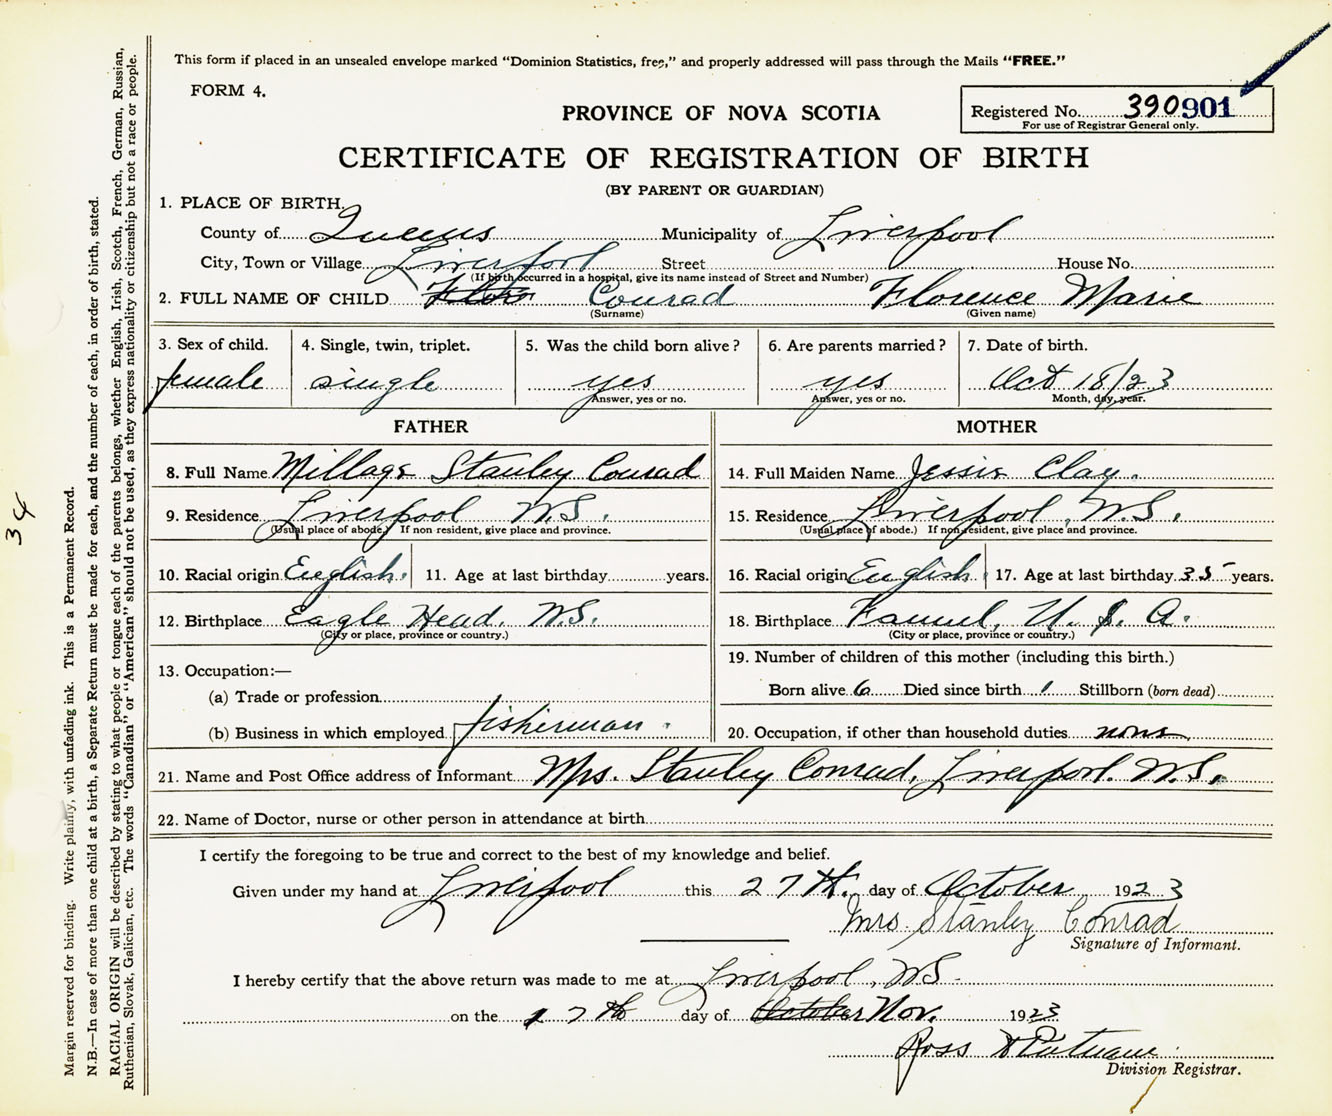 This form if placed in an unsealed envelope marked "Dominion Statistics, free," and properly addressed will pass through the Mails "FREE."
FORM 4.
PROVINCE OF NOVA SCOTIA
Registered No. 390901
For use of Registrar General only.
CERTIFICATE OF REGISTRATION OF BIRTH
(BY PARENT OR GUARDIAN)
1. PLACE OF BIRTH.
County of Queens Municipality of Liverpool
City, Town or Village Liverpool Street House No.
(If birth occurred in a hospital, give its name instead of Street and Number)
2. FULL NAME OF CHILD Conrad Florence Marie
(Surname) (Given name)
3. Sex of child. 4. Single, twin, triplet. 5. Was the child born alive? 6. Are parents married? 7. Date of birth.
female single yes yes Oct 18/23
Answer, yes or no. Answer, yes or no. Month, day, year.
FATHER MOTHER
8. Full Name Millage Stanley Conrad 14. Full Maiden Name Jessie Clay.
9. Residence Liverpool N.S. 15. Residence Liverpool, N.S.
(Usual place of abode.) If non resident, give place and province. (Usual place of abode.) If non resident, give place and province.
10. Racial origin English. 11. Age at last birthday years. 16. Racial origin English 17. Age at last birthday 35 years.
12. Birthplace Eagle Head. N.S. 18. Birthplace U. S. A.
(City or place, province or country.) (City or place, province or country.)
13. Occupation:— 19. Number of children of this mother (including this birth.)
(a) Trade or profession Born alive 6 Died since birth 1 Stillborn (born dead)
(b) Business in which employed fisherman. 20. Occupation, if other than household duties none
21. Name and Post Office address of Informant Mrs. Stanley Conrad, Liverpool. N.S.
22. Name of Doctor, nurse or other person in attendance at birth
I certify the foregoing to be true and correct to the best of my knowledge and belief.
Given under my hand at Liverpool this 27th. day of October 1923
Mrs. Stanley Conrad
Signature of Informant.
I hereby certify that the above return was made to me at Liverpool, N.S.
on the 17th day of October Nov. 1923
Ross
Division Registrar.
Margin reserved for binding. Write plainly, with unfading ink. This is a Permanent Record.
N.B.—In case of more than one child at a birth, a Separate Return must be made for each, and the number of each, in order of birth, stated.
RACIAL ORIGIN will be described by stating to what people or tongue each of the parents belongs, whether English, Irish, Scotch, French, German, Russian,
Ruthenian, Slovak, Galician, etc. The words "Canadian" or "American" should not be used, as they express nationality or citizenship but not a race or people.
34